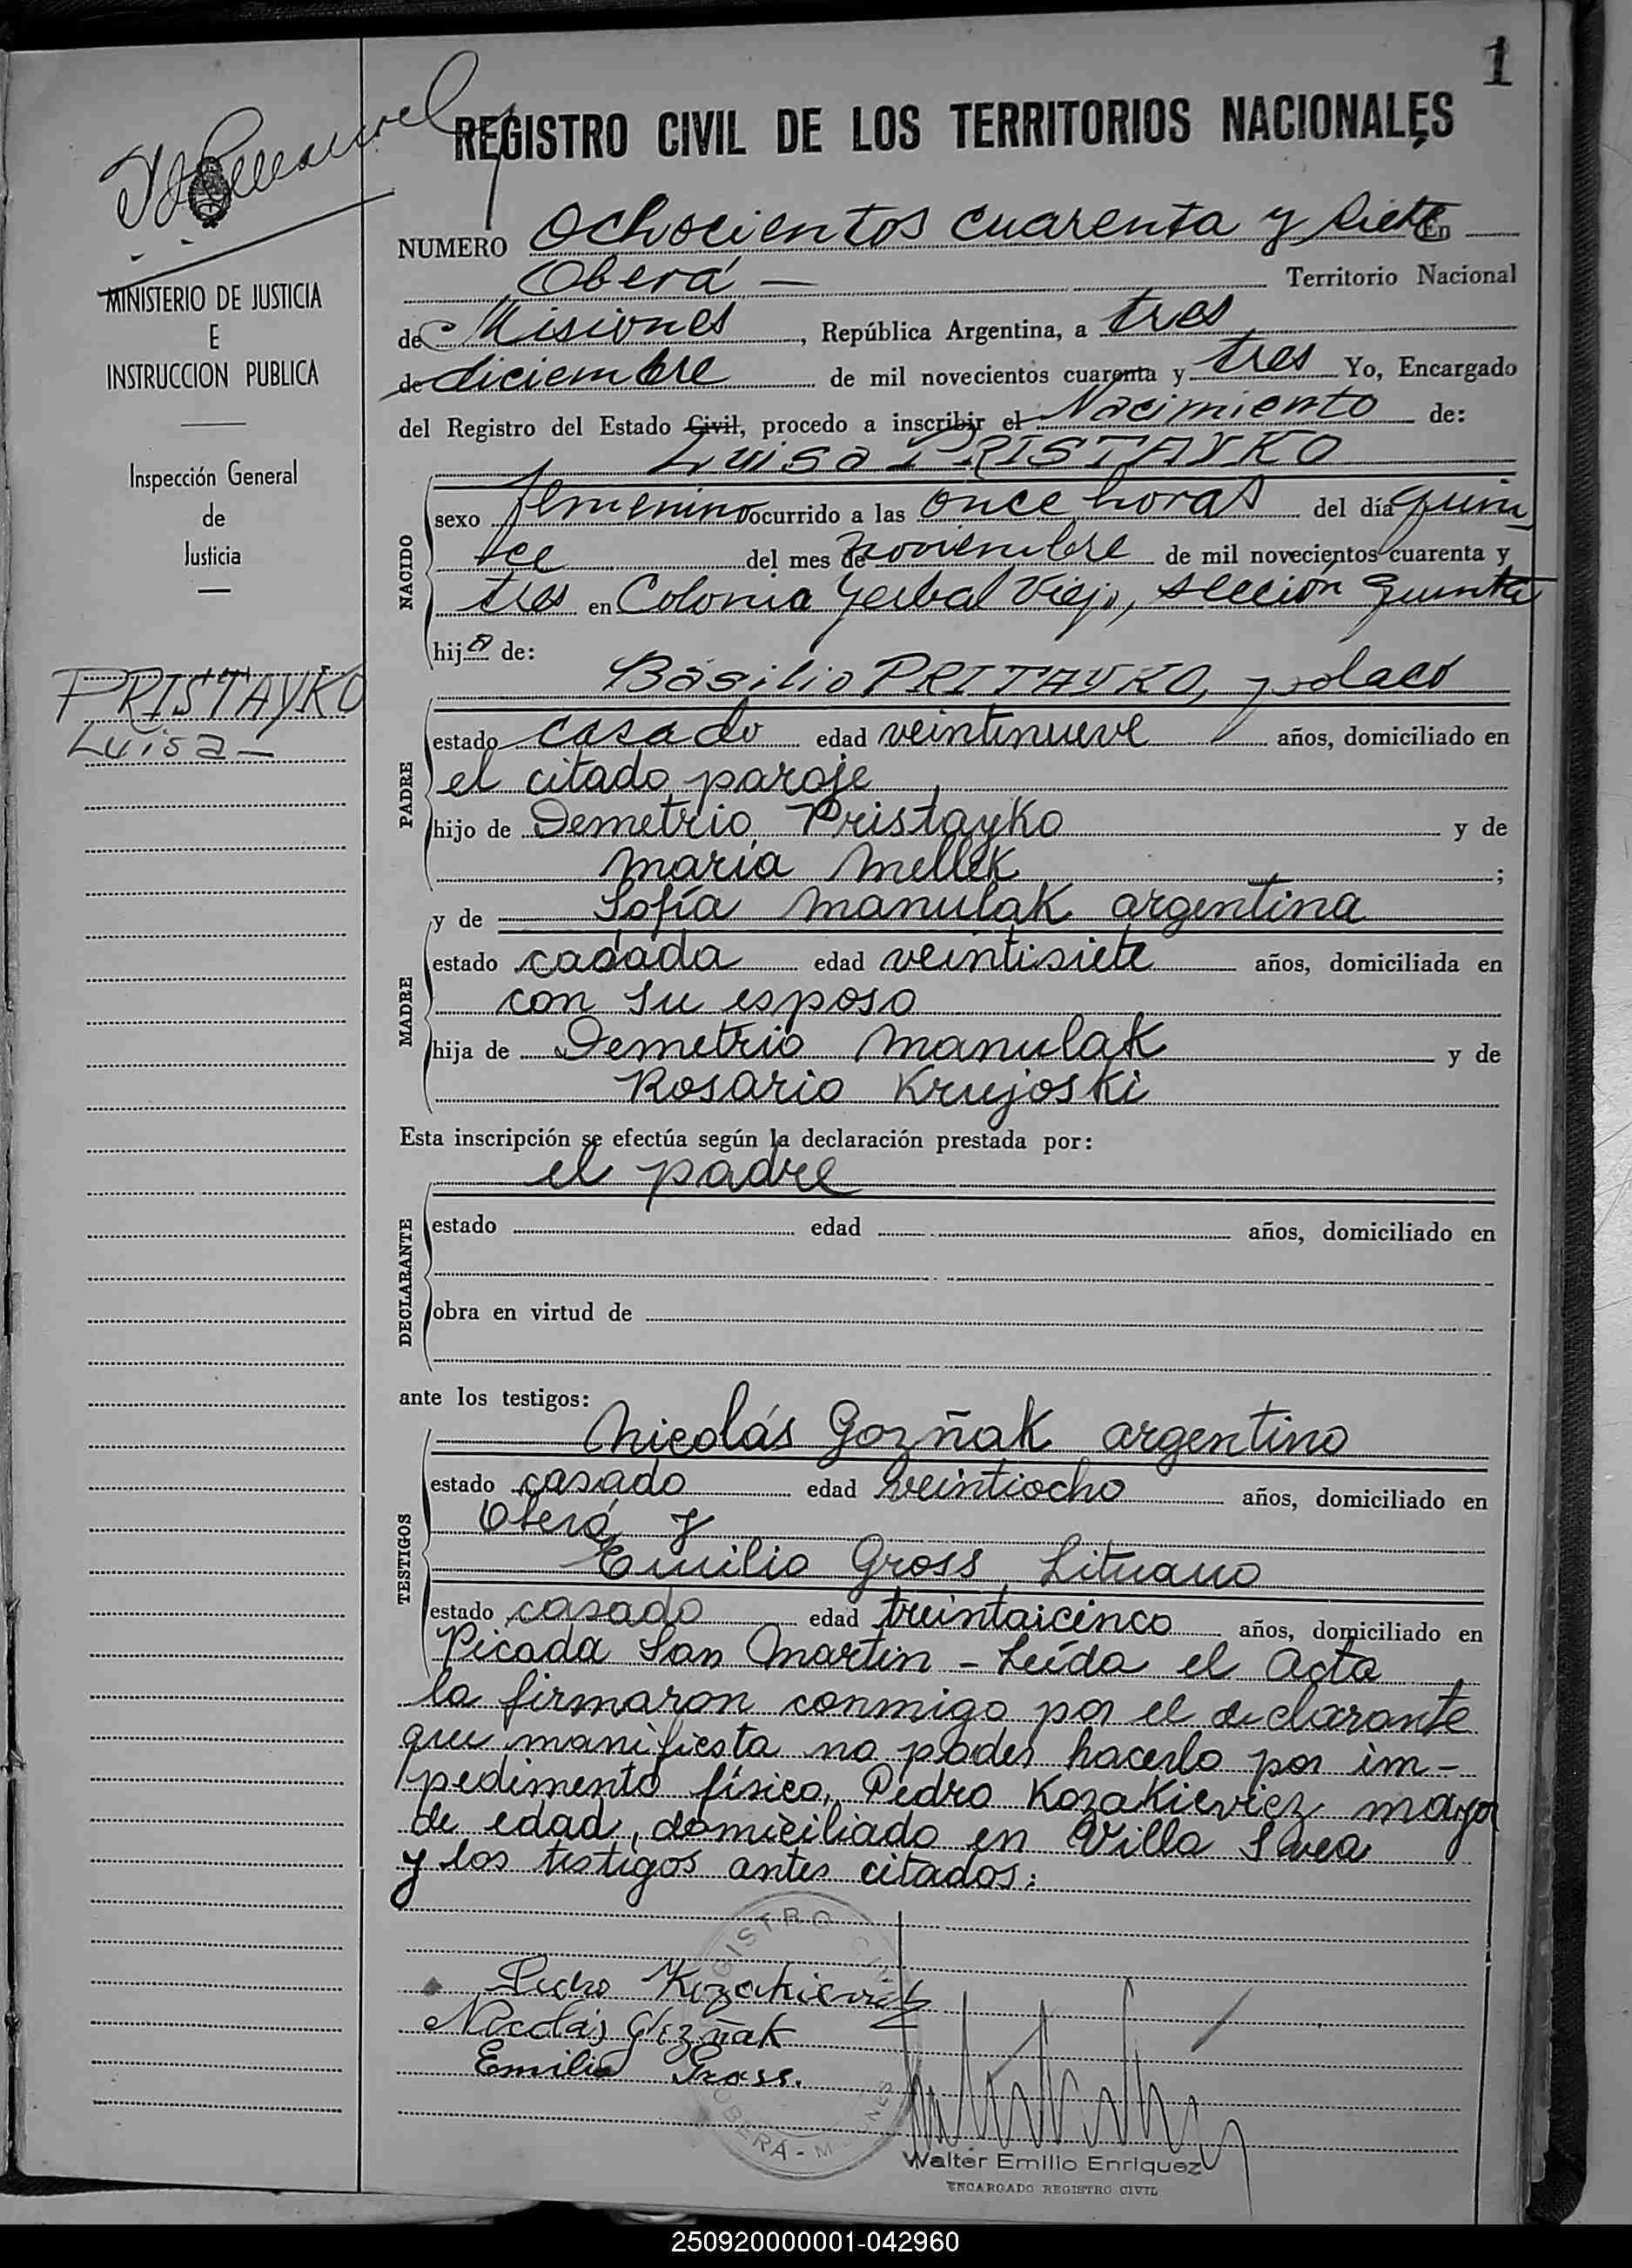 1
REGISTRO CIVIL DE LOS TERRITORIOS NACIONALES
MINISTERIO DE JUSTICIA
E
INSTRUCCION PUBLICA
Inspección General
de
Justicia
PRISTAYKO
Luisa -
NUMERO Ochocientos cuarenta y siete En
Oberá - Territorio Nacional
de Misiones, República Argentina, a tres
de diciembre de mil novecientos cuarenta y tres Yo, Encargado
del Registro del Estado Civil, procedo a inscribir el Nacimiento de:
Luisa PRISTAYKO
NACIDO
sexo femenino ocurrido a las once horas del día quin
ce del mes de noviembre de mil novecientos cuarenta y
tres en Colonia Yerbal Viejo, sección Quinta
hija de:
Basilio PRITAYKO, polaco
PADRE
estado casado edad veintinueve años, domiciliado en
el citado paraje
hijo de Demetrio Pristayko y de
María Mellek ;
y de Sofía Manulak argentina
MADRE
estado casada edad veintisiete años, domiciliada en
con su esposo
hija de Demetrio Manulak y de
Rosario Krujoski
Esta inscripción se efectúa según la declaración prestada por:
el padre
DECLARANTE
estado edad años, domiciliado en
obra en virtud de
ante los testigos:
Nicolás Gozñak argentino
TESTIGOS
estado casado edad veintiocho años, domiciliado en
Oberá y
Emilio Gross Lituano
estado casado edad treintaicinco años, domiciliado en
Picada San Martin - Leída el Acta
la firmaron conmigo por el declarante
que manifiesta no poder hacerlo por im-
pedimento físico, Pedro Kozakievicz mayor
de edad, domiciliado en Villa Svea
y los testigos antes citados:
Pedro Kozakievicz
Nicolás Gozñak
Emilio Gross.
OBERA - MISIONES
Walter Emilio Enriquez
ENCARGADO REGISTRO CIVIL
250920000001-042960